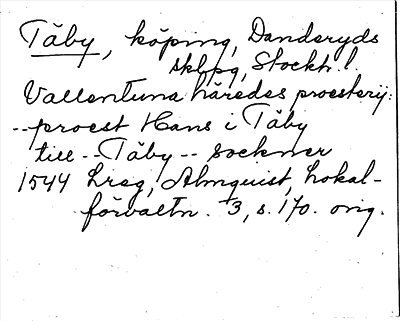 Täby, köping, Danderyds
skbpg, Stockh. l.
Vallentuna häredes proesterij:
--proest Hans i Täby
till -- Täby -- sockner
1544 hrag, Almquist, Lokal-
förvaltn. 3, s. 170. orig.